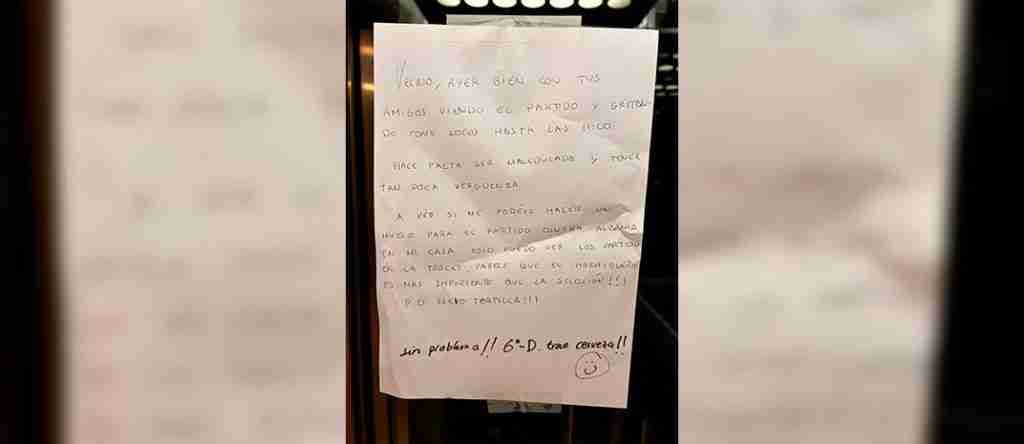 VECINO, AYER BIEN CON TUS
AMIGOS VIENDO EL PARTIDO Y GRITAN-
DO COMO LOCO HASTA LAS 11:00.
HACE FALTA SER MALEDUCADO Y TENER
TAN POCA VERGÜENZA.
A VER SI ME PODÉIS HACER UN
HUECO PARA EL PARTIDO CONTRA ALEMANIA
EN MI CASA SOLO PUEDO VER LOS PARTIDO
DE LA TARDE, PARECE QUE EL HORMIGUERO
ES MAS IMPORTANTE QUE LA SELECCIÓN!!!
P.D. LLEVO TORTILLA!!!
sin problema!! 6º-D. trae cerveza!!